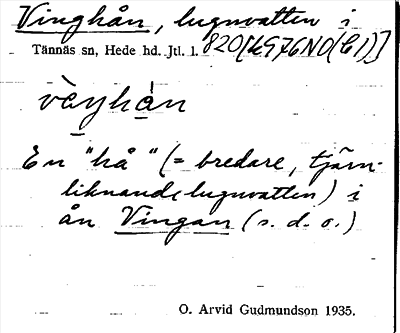 Vinghån, lugnvatten i
Tännäs sn, Hede hd. Jtl. l. 820[LG76NO(C1)]
vèŋhån
En "hå" (= bredare, tjärn-
liknande lugnvatten) i
ån Vingan (s. d. o.)
O. Arvid Gudmundson 1935.